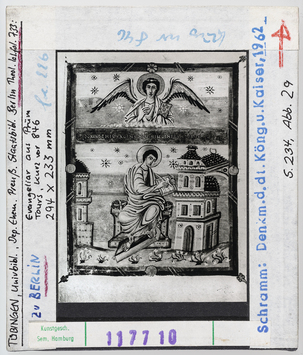 TÜBINGEN, Univbibl., Dep. Ehem. Preuß. Staatsbibl. Berlin Theol. lat. fol. 733:
Evangeliar aus Prüm
Tours, kurz vor 846
294 x 233 mm
zu BERLIN
kurz vor 846
Schramm: Denkm. d. dt. Köng. u. Kaiser, 1962
S. 234, Abb. 29
Kunstgesch.
Sem. Hamburg
117710